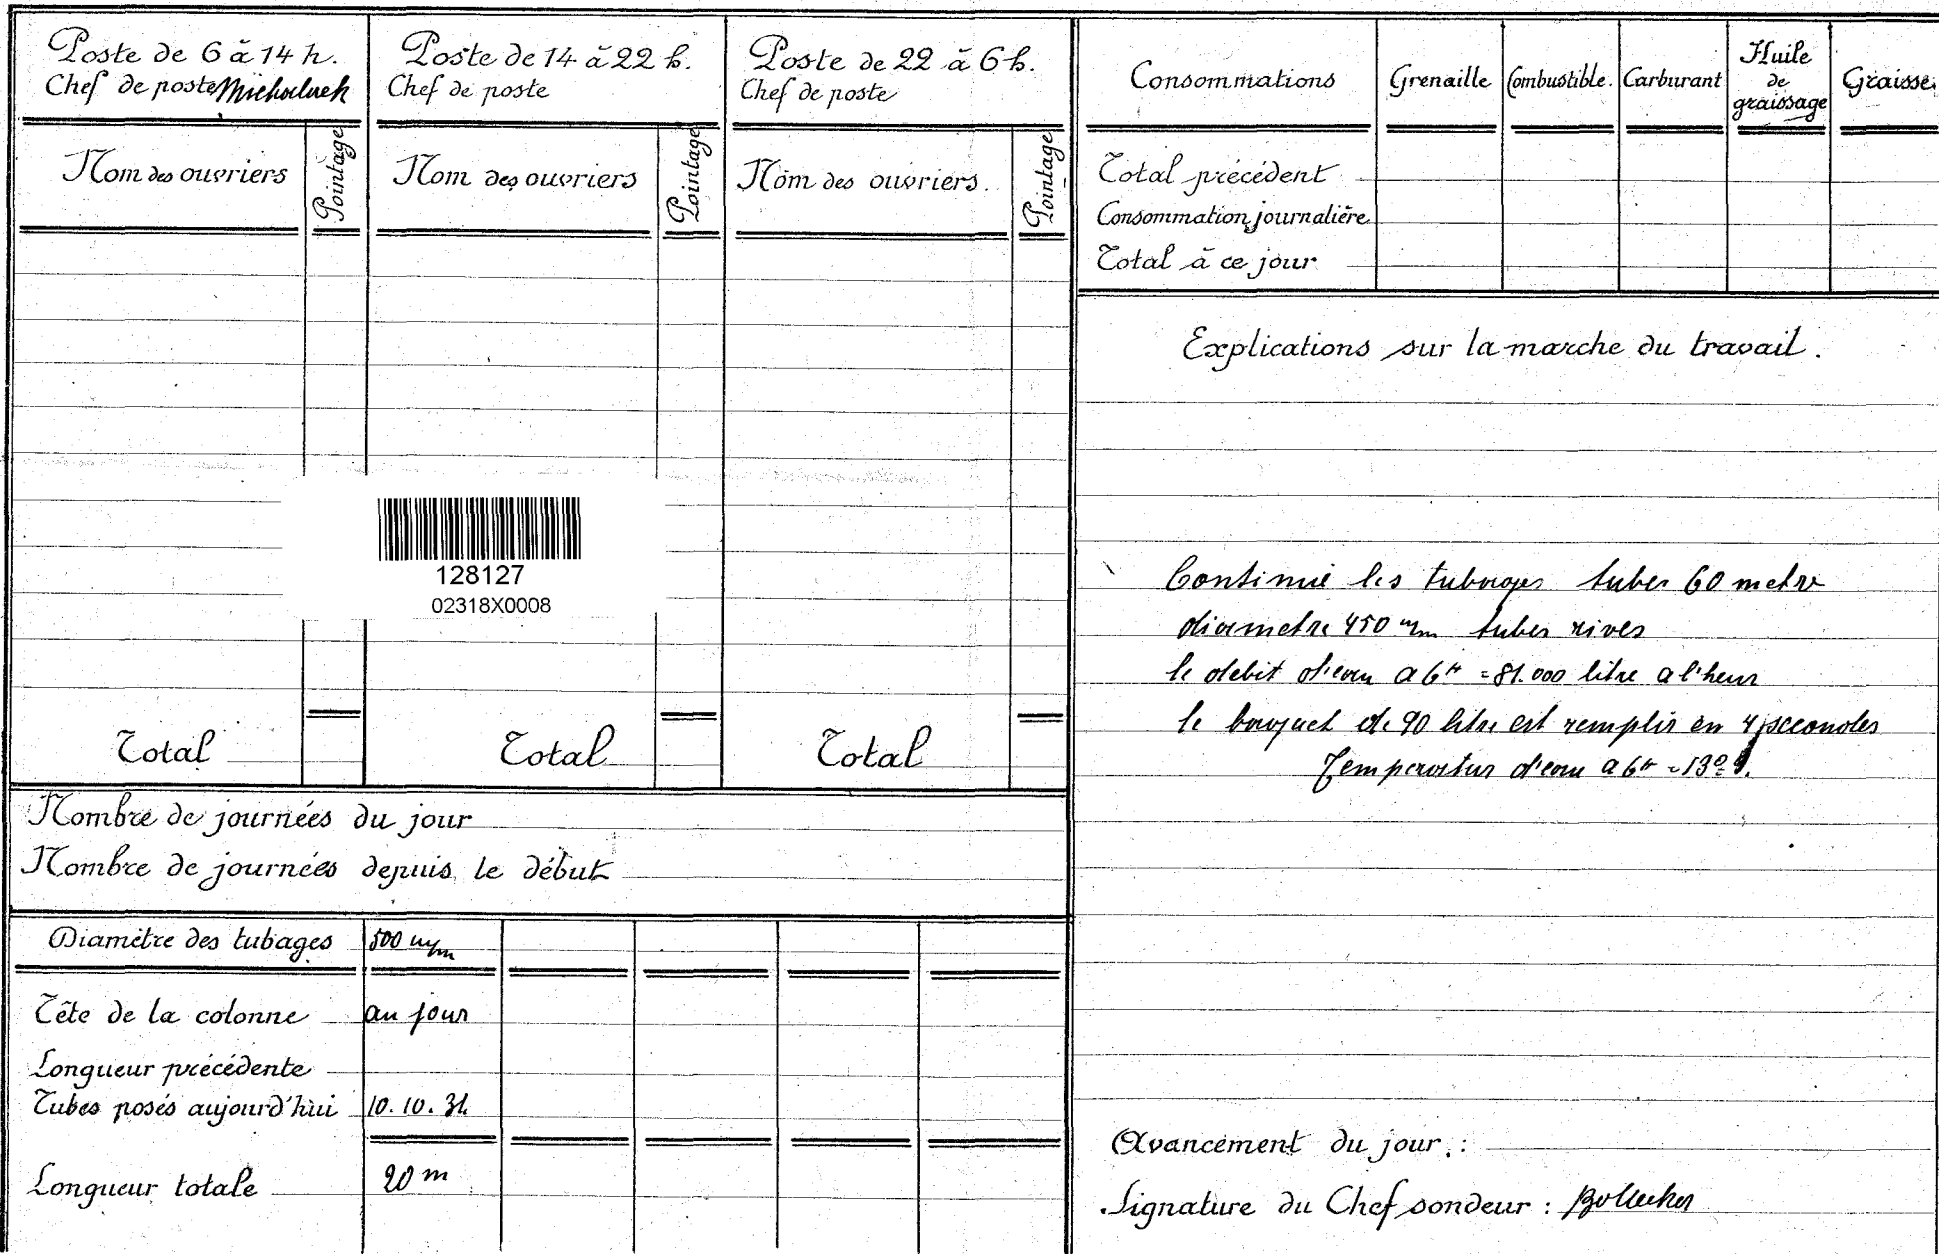 Poste de 6 à 14 h.
Chef de poste
Nom des ouvriers
Pointage
Total
Poste de 14 à 22 h.
Chef de poste
Nom des ouvriers
Pointage
Total
Poste de 22 à 6 h.
Chef de poste
Nom des ouvriers.
Pointage
Total
128127
02318X0008
Nombre de journées du jour
Nombre de journées depuis le début
Diamètre des tubages 500 m/m
Tête de la colonne au jour
Longueur précédente
Tubes posés aujourd'hui 10.10.31
Longueur totale 20 m
Consommations Grenaille Combustible. Carburant Huile de graissage Graisse
Total précédent
Consommation journalière
Total à ce jour
Explications sur la marche du travail.
Continué les tubages tuber 60 metre
diametre 450 m/m tuber rives
le debit d'eau a 6h = 81.000 litre a l'heur
le baquet de 90 litre est remplir en 4 secondes
Temperatur d'eau a 6h = 13°
Avancement du jour :
Signature du Chef sondeur :